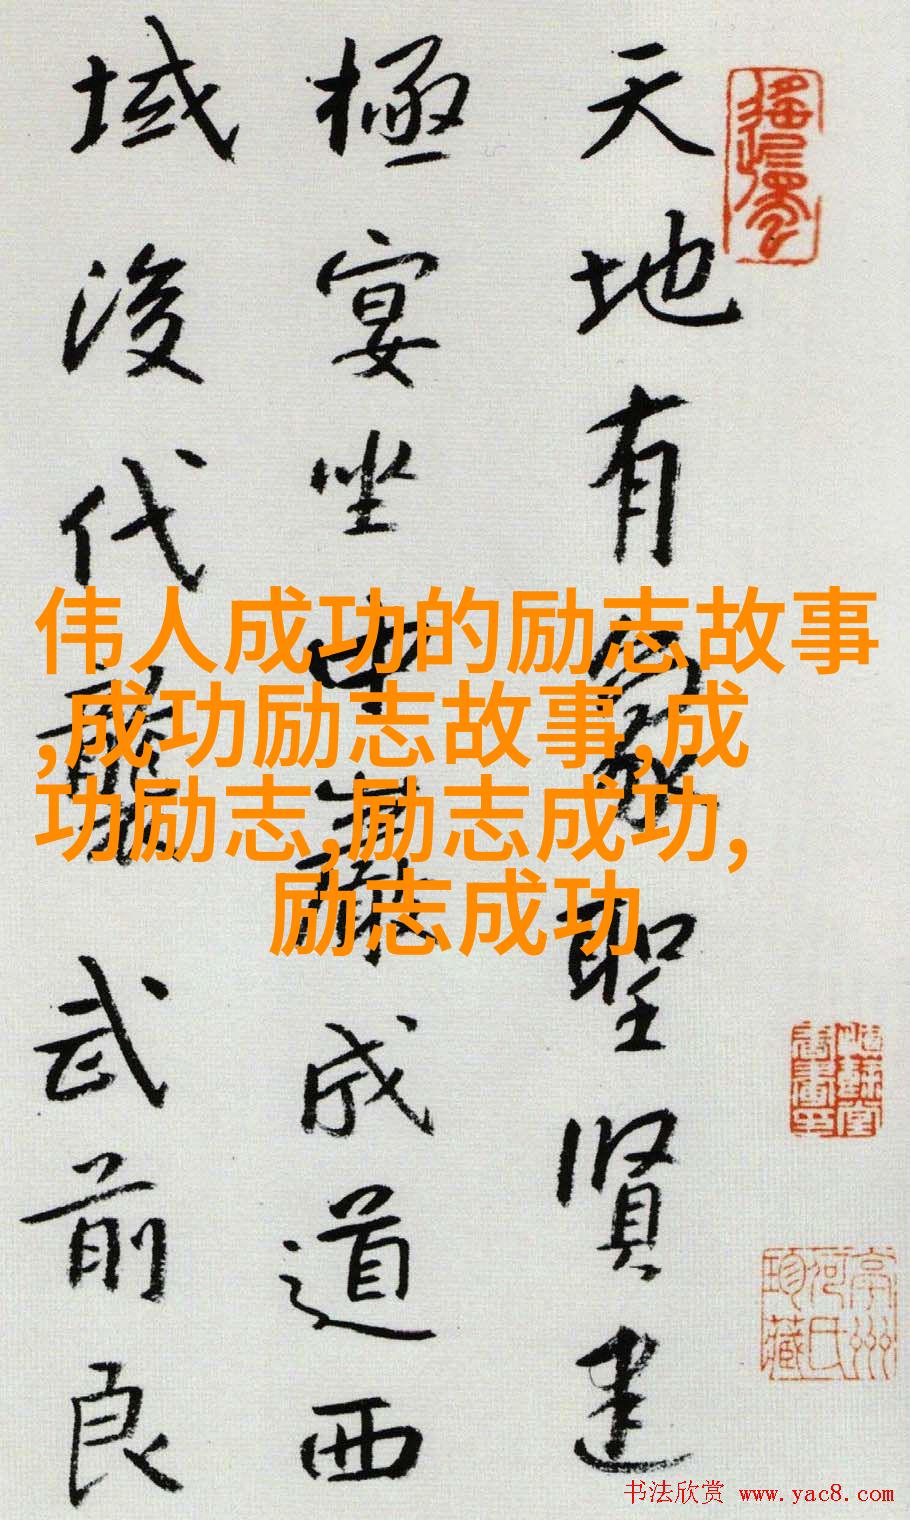 天地有象聖賢建
極宴坐中巖成道西
域後代襲武前良
伟人成功的励志故事
,成功励志故事,成
功励志,励志成功,
励志成功
书法欣赏 www.yac8.com